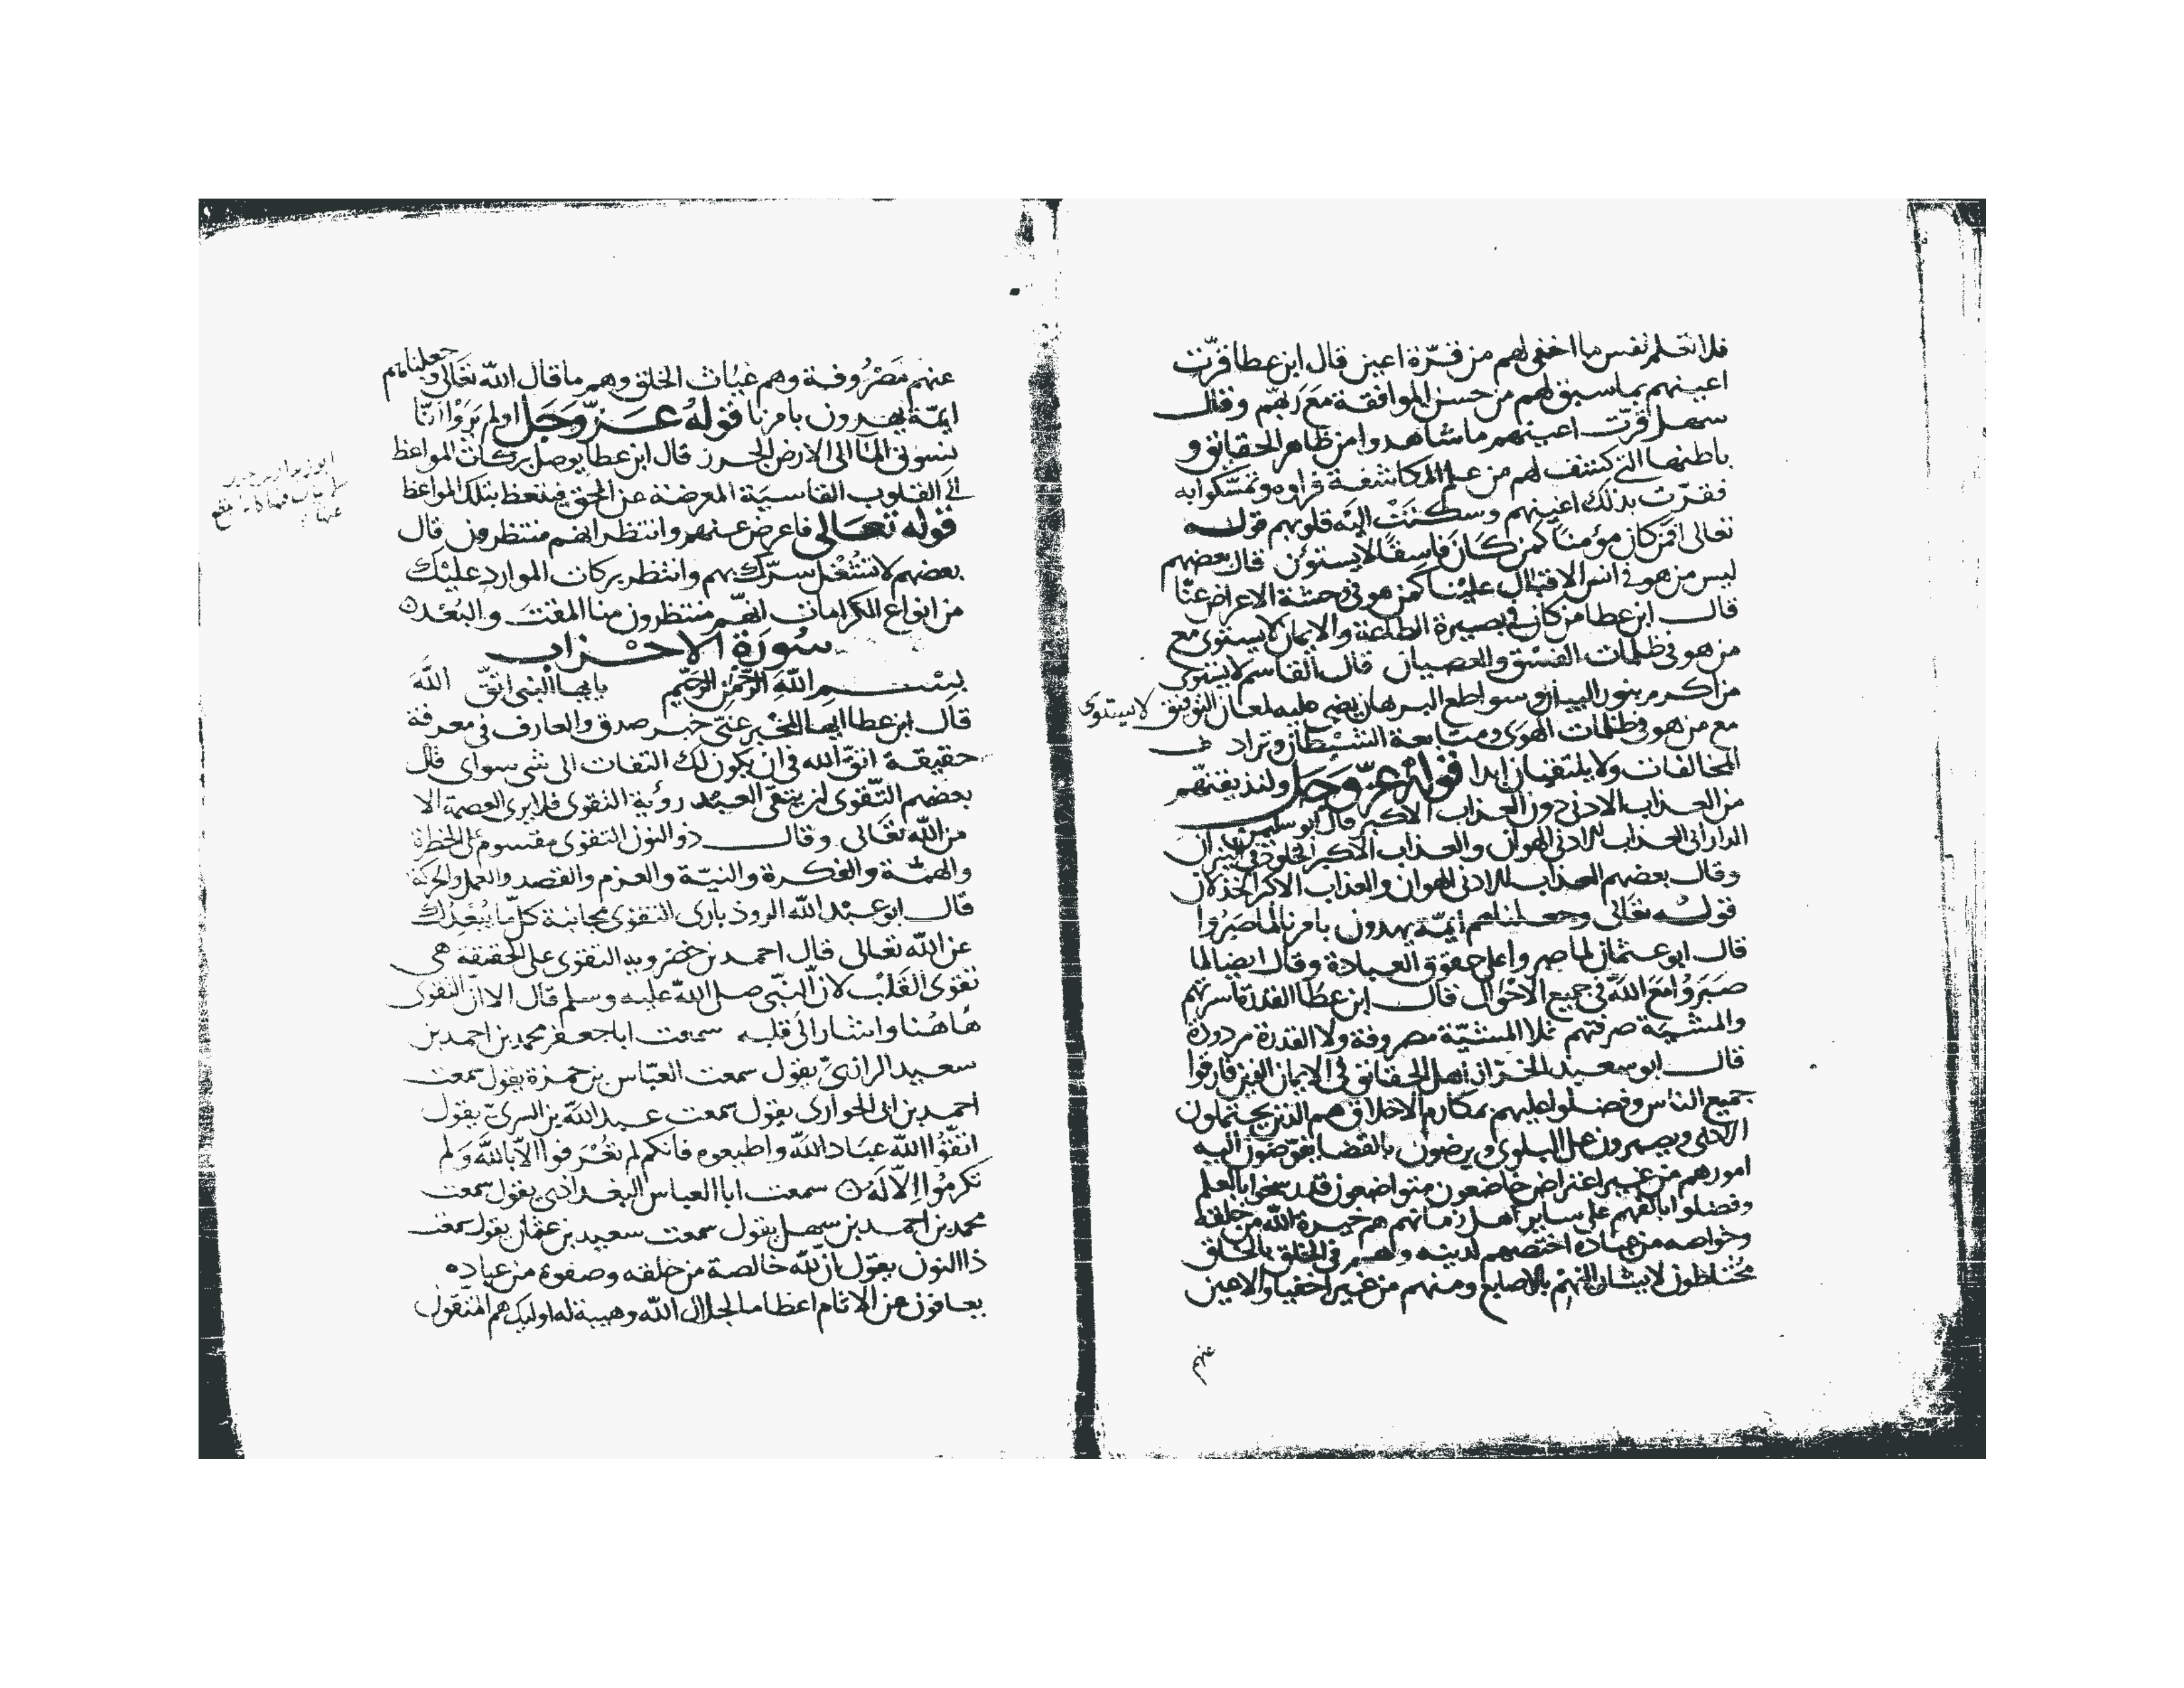 فلا تعلم نفس ما اخفي لهم من قرّة اعين قال ابن عطا قرّت
اعينهم بما سبق لهم من حسن الموافقة مع ربّهم وقال
سهل قرّت اعينهم ما شاهدوا من ظاهر الحقائق و
باطنها الذي كشف لهم من علم المكاشفة فراوه وتمسّكوا به
فقرّت بذلك اعينهم وسكنت اليه قلوبهم قوله
تعالى افمن كان مؤمنا كمن كان فاسقا لا يستوون قال بعضهم
ليس من هو في انس الاقبال علينا كمن هو في وحشة الاعراض عنّا
قال ابن عطا من كان في بصيرة الطاعة والايمان لا يستوى مع
من هو في ظلمات الفسق والعصيان قال القاسم لا يستوى
من اكرم بنور البيان وسواطع البرهان يضي عليه لمعان التوفيق لا يستوى
مع من هو في ظلمات الهوى ومتابعة الشيطان وتراد ف
المخالفات ولا يلتقيان ابدا قوله عزّ وجل ولنذيقنّهم
من العذاب الادنى دون العذاب الاكبر قال ابو سليمن
الداراني العذاب الادنى الهوان والعذاب الاكبر الخلود في النيران
وقال بعضهم العذاب الادنى الهوان والعذاب الاكبر الخذلان
قوله تعالى وجعلناهم ايمّة يهدون بامرنا لما صبروا
قال ابو عثمان لما صبروا على حقوق العبادة وقال ايضا لما
صبروا مع الله في جميع الاحوال قال ابن عطا القدرة اسرتهم
والمشيّة صرفتهم فلا المشيّة مصروفة ولا القدرة مردودة
قال ابو سعيد الخرّاز اهل الحقائق في الايمان الذين فارقوا
جميع الناس وفضلوا عليهم بمكارم الاخلاق هم الذين يحتملون
الاذى ويصبرون على البلوى ويرضون بالقضا يفوّضون اليه
امورهم من غير اعتراض خاضعون متواضعون قد سخوا بالعلم
وفضلوا بالفهم على ساير اهل زمانهم هم خيرة الله من خلقه
وخواصه من عباده اختصهم لدينه وهم في الخلق بالخلق
مختلطون لا يشار اليهم بالاصابع ومنهم من غير اخفيا والاعين
عنهم
عنهم مصروفة وهم غياث الخلق وهم ما قال الله تعالى وجعلناهم
ايمّة يهدون بامرنا قوله عزّ وجل اولم يروا انّا
نسوق الما الى الارض الجرز قال ابن عطا يوصل بركات المواعظ
الى القلوب القاسية المعرضة عن الحق فيتعظ بتلك المواعظ
قوله تعالى فاعرض عنهم وانتظر انهم منتظرون قال
بعضهم لا تشغل سرّك بهم وانتظر بركات الموارد عليك
من انواع الكرامات انهّم منتظرون منا المقت والبعد
سورة الاحزاب
بسم الله الرحمن الرحيم يا يها النبي اتقّ الله
قال ابن عطا ايها المخبر عنّي خبر صدق والعارف في معرفة
حقيقة اتقّ الله في ان يكون لك التفات الى شي سواى قال
بعضهم التّقوى لن ينفى العبد رؤية التقوى فلا يرى العصمة الا
من الله تعالى وقال ذو النون التقوى مقسوم في الخطرة
والهمّة والفكرة والنيّة والعزم والقصد والعمل والحركة
قال ابو عبد الله الروذبارى التقوى مجانبة كلّ ما يبعدك
عن الله تعالى قال احمد بن خضرويه التقوى على الحقيقة هي
تقوى القلب لانّ النبّي صلى الله عليه وسلم قال الا انّ التقوى
هاهنا واشار الى قلبه سمعت ابا جعفر محمد بن احمد بن
سعيد الرازيّ يقول سمعت العبّاس بن حمزة يقول سمعت
احمد بن ابى الحوارى يقول سمعت عبد الله بن السريّ يقول
اتّقوا الله عباد الله واطيعوه فانكم لم تعرفوا الا بالله ولم
تكرموا الّا له سمعت ابا العباس البغدادى يقول سمعت
محمد بن احمد بن سهل يقول سمعت سعيد بن عثمان يقول سمعت
ذا النون يقول انّ لله خالصة من خلقه وصفوة من عباده
يعافون عن الاثام اعظاما لجلال الله وهيبة له اوليك هم المتّقون